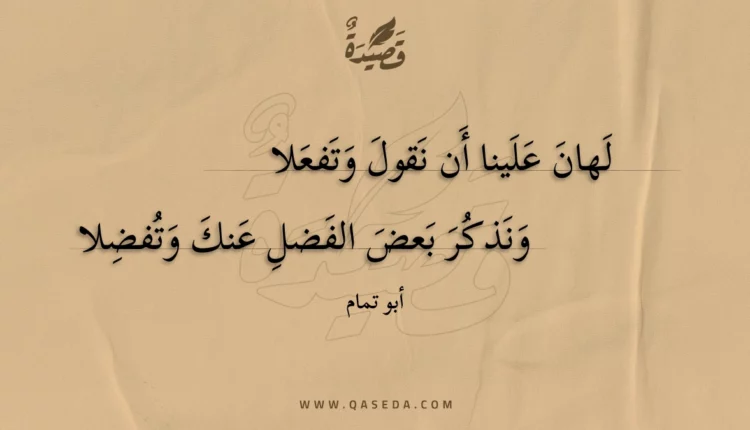 قَصِيدَةٌ
لَهانَ عَلَينا أَن نَقولَ وَتَفعَلا
وَنَذكُرَ بَعضَ الفَضلِ عَنكَ وَتُفضِلا
أبو تمام
WWW.QASEDA.COM